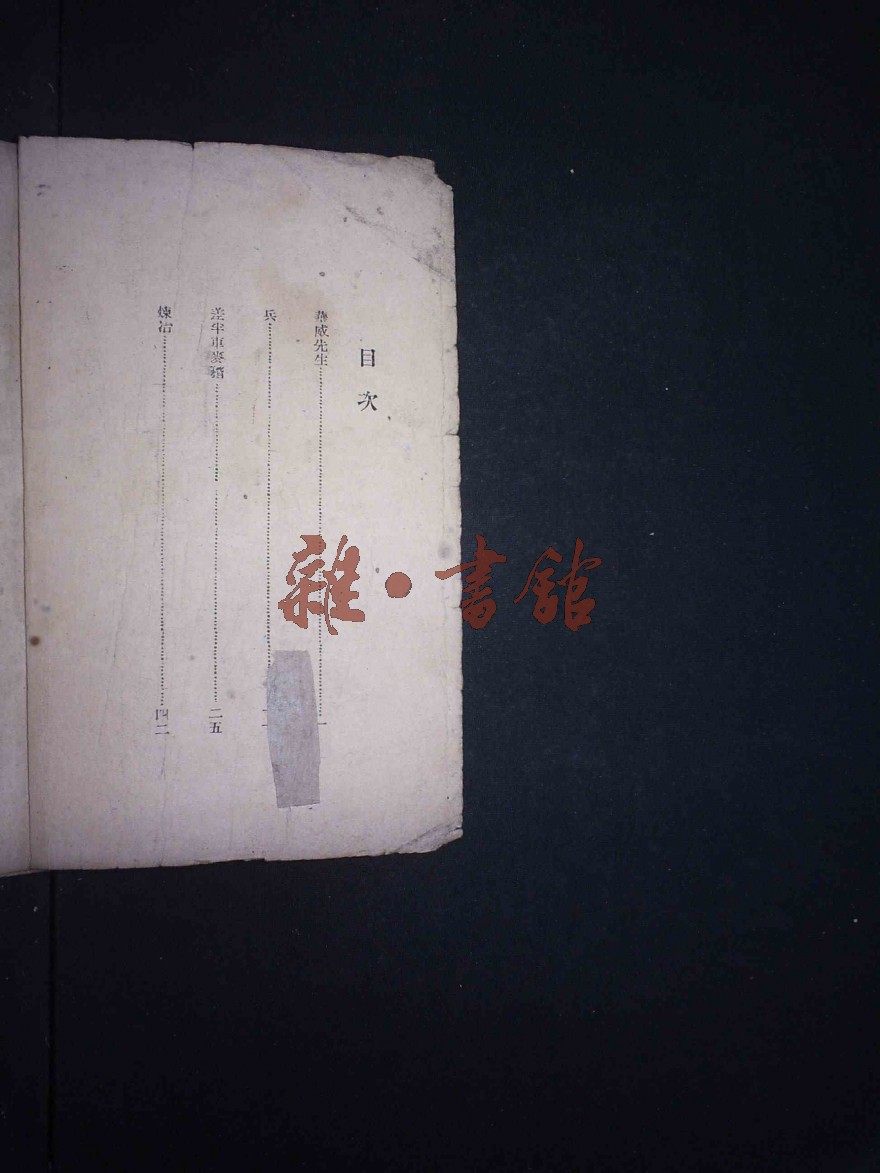 目次
華威先生……一
兵……一
差半車麥稭……二五
煉冶……四二
雜·書館